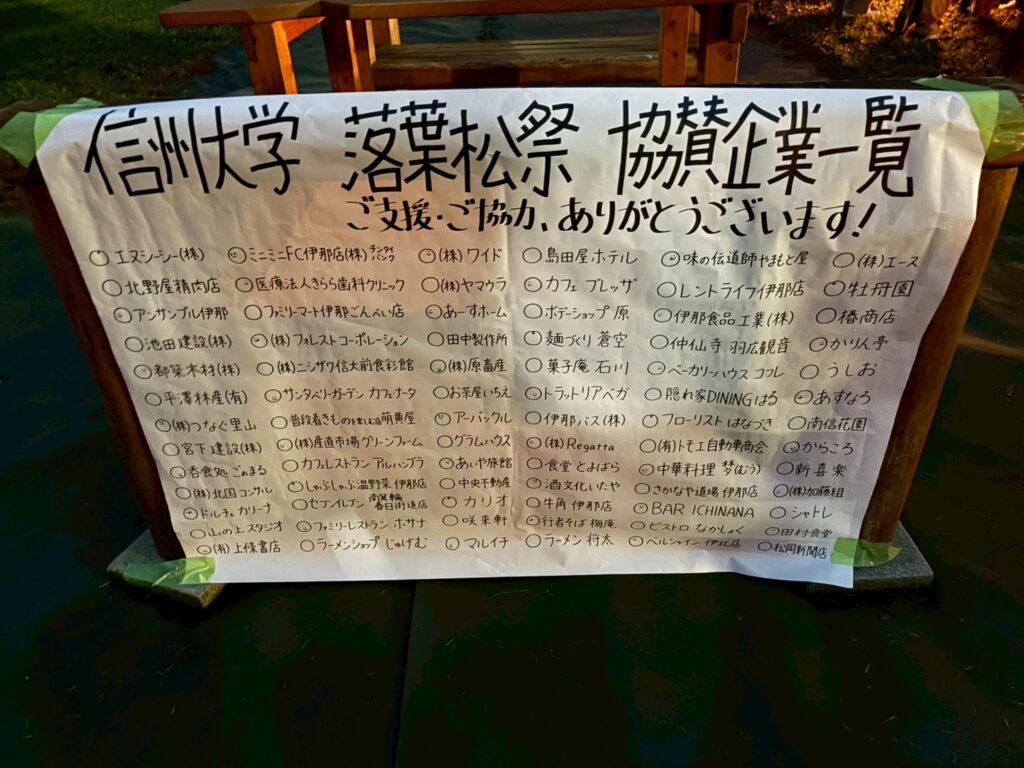 信州大学 落葉松祭 協賛企業一覧
ご支援・ご協力、ありがとうございます!
○エヌシーシー(株)
○北野屋精肉店
○アンサンブル伊那
○池田建設(株)
○都築木材(株)
○平澤林産(有)
○(株)つなぐ里山
○宮下建設(株)
○呑食処 ごぁまる
○(株)北国コンサル
○ドルチェ カリーナ
○山の上スタジオ
○(有)上條書店
○ミニミニFC伊那店(株)
○医療法人きらら歯科クリニック
○ファミリーマート伊那ごんべい店
○(株)フォレストコーポレーション
○(株)ニシザワ信大前食彩館
○サンタベリーガーデン カフェナータ
○普段着きものを楽しむ萌黄屋
○(株)産直市場グリーンファーム
○カフェレストラン アルハンブラ
○しゃぶしゃぶ温野菜 伊那店
○セブンイレブン 南箕輪春日街道店
○ファミリーレストラン ホサナ
○ラーメンショップ じゅげむ
○(株)ワイド
○(株)ヤマウラ
○あーすホーム
○田中製作所
○(株)原畜産
○お茶屋いちえ
○アーバックル
○グラムハウス
○あいや旅館
○中央不動産
○カリオ
○咲来軒
○マルイチ
○島田屋ホテル
○カフェ ブレッザ
○ボデーショップ 原
○麺づくり 蒼空
○菓子庵 石川
○トラットリアベガ
○伊那バス(株)
○(株)Regatta
○食堂 とよばら
○酒文化いたや
○牛角 伊那店
○行者そば 梅庵
○ラーメン 将太
○味の伝道師やまもと屋
○レントライフ伊那店
○伊那食品工業(株)
○仲仙寺 羽広観音
○ベーカリーハウス コフレ
○隠れ家DININGはる
○フローリスト はなづき
○(有)トモエ自動車商会
○中華料理 梦(むう)
○さかなや道場 伊那店
○BAR ICHINANA
○ビストロ なかしょく
○ベルシャイン 伊北店
○(株)エース
○牡丹園
○椿商店
○かりん亭
○うしお
○あすなろ
○南信花園
○からころ
○新喜楽
○(株)加藤組
○シャトレ
○田村食堂
○松岡新聞店